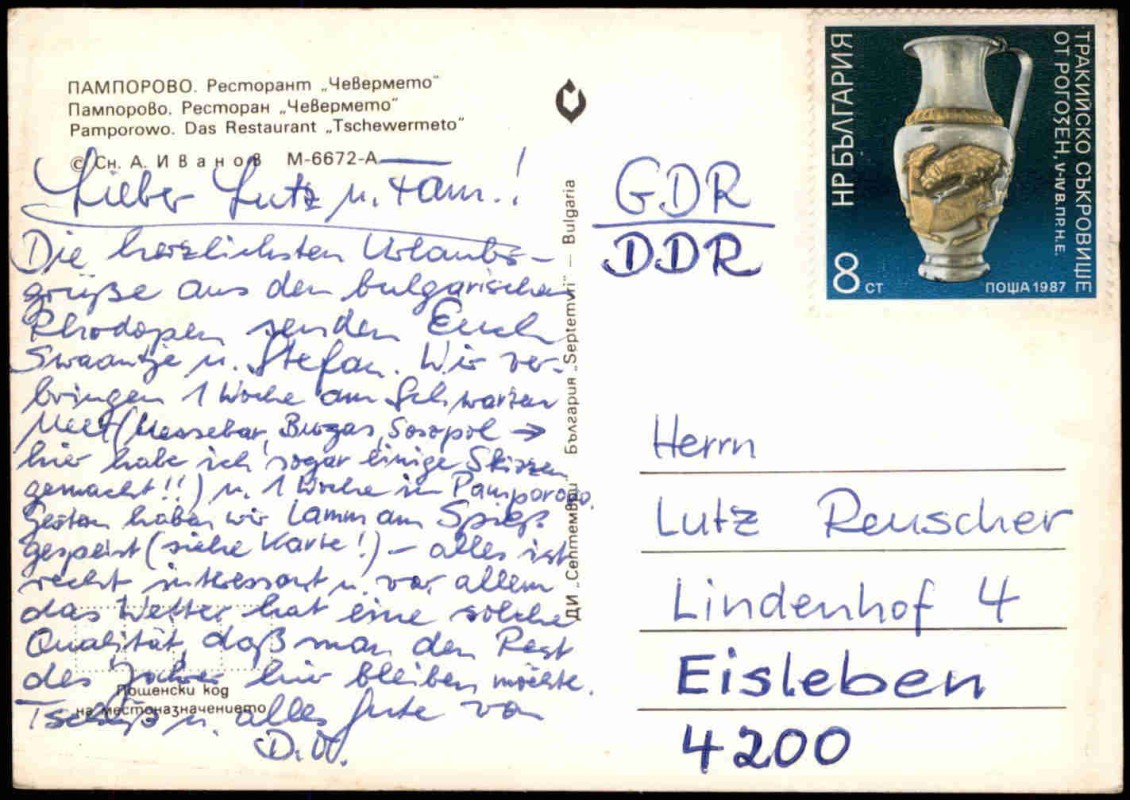 ПАМПОРОВО. Ресторант „Чевермето“
Пампорово. Ресторан „Чевермето“
Pamporowo. Das Restaurant „Tschewermeto“
© Сн. А. Иванов М-6672-А
Lieber Lutz u. Fam.!
Die herzlichsten Urlaubs-
grüße aus den bulgarischen
Rhodopen senden Euch
Swaantje u. Stefan. Wir ver-
bringen 1 Woche am Schwarzen
Meer (Nessebar, Burgas, Sosopol →
hier habe ich sogar einige Skizzen
gemacht!!) u. 1 Woche in Pamporovo.
Gestern haben wir Lamm am Spieß
gespeist (siehe Karte!) – alles ist
recht interessant u. vor allem
das Wetter hat eine solche
Qualität, daß man den Rest
des Jahres hier bleiben möchte.
Tschüß u. alles Gute von
D.O.
Пощенски код
на местоназначението
ДИ „Септември“ България „Septemvri“ — Bulgaria
GDR
DDR
НР БЪЛГАРИЯ
ТРАКИЙСКО СЪКРОВИЩЕ
ОТ РОГОЗЕН, V-IV В. ПР. Н. Е.
8 СТ
ПОЩА 1987
Herrn
Lutz Reuscher
Lindenhof 4
Eisleben
4200